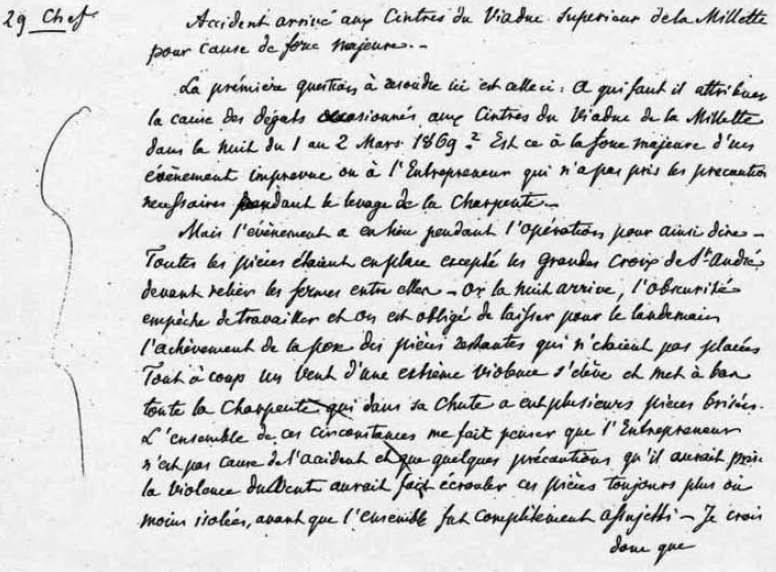 29 Chef
Accident arrivé aux Cintres du Viaduc Supérieur de la Millette
pour cause de force majeure. -
La prémière question à resoudre ici est celle ci : A qui faut il attribuer
la cause des dégats occasionnés aux Cintres du Viaduc de la Millette
dans la nuit du 1 au 2 Mars 1869 ? Est ce à la force majeure d'un
évènement imprevue ou à l'Entrepreneur qui n'a pas pris les precautions
necessaires pendant le levage de la Charpente. -
Mais l'évènement a eu lieu pendant l'opération pour ainsi dire -
Toutes les pièces étaient en place excepté les grandes Croix de St. André
devant relier les fermes entre elles - Or la nuit arrive, l'obscurité
empêche de travailler et on est obligé de laisser pour le landemain
l'achèvement de la pose des pièces restantes qui n'étaient pas placées
Tout à coup un Vent d'une extreme violence s'élève et met à bas
toute la Charpente qui dans sa Chute a eut plusieurs pièces brisées.
L'ensemble de ces Circonstances me fait penser que l'Entrepreneur
n'est pas cause de l'accident et que quelques précautions qu'il aurait prises
la violence du Vent aurait fait écrouler ces pièces toujours plus ou
moins isolées, avant que l'ensemble fut complètement assujetti - Je crois
donc que